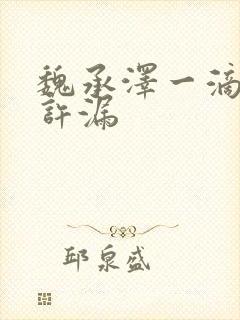 魏承澤一滴
許漏
邱泉盛